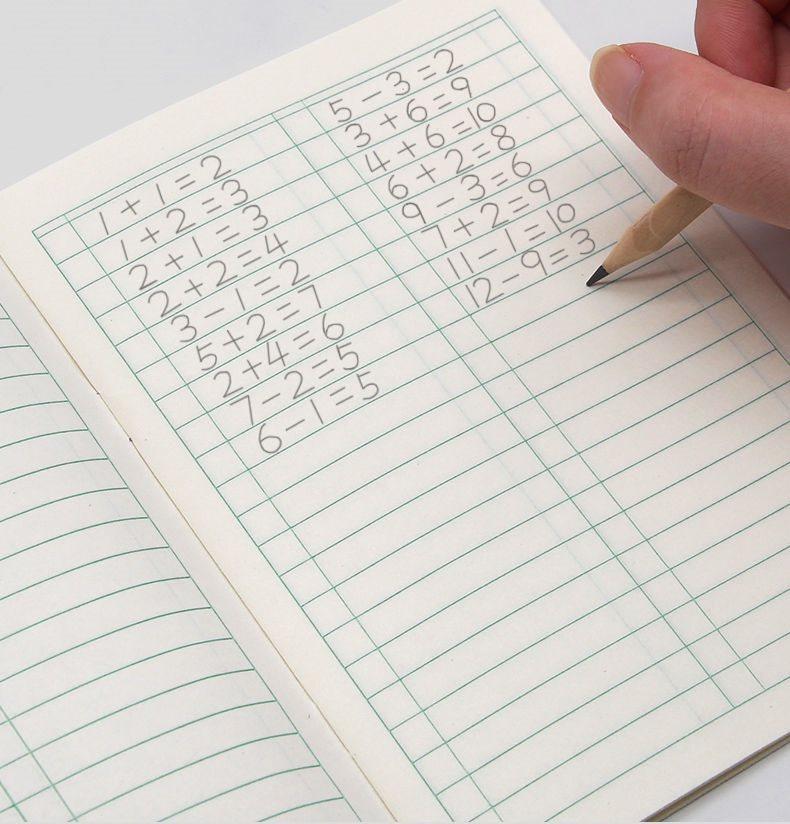 1+1=2
1+2=3
2+1=3
2+2=4
3-1=2
5+2=7
2+4=6
7-2=5
6-1=5
5-3=2
3+6=9
4+6=10
6+2=8
9-3=6
7+2=9
11-1=10
12-9=3